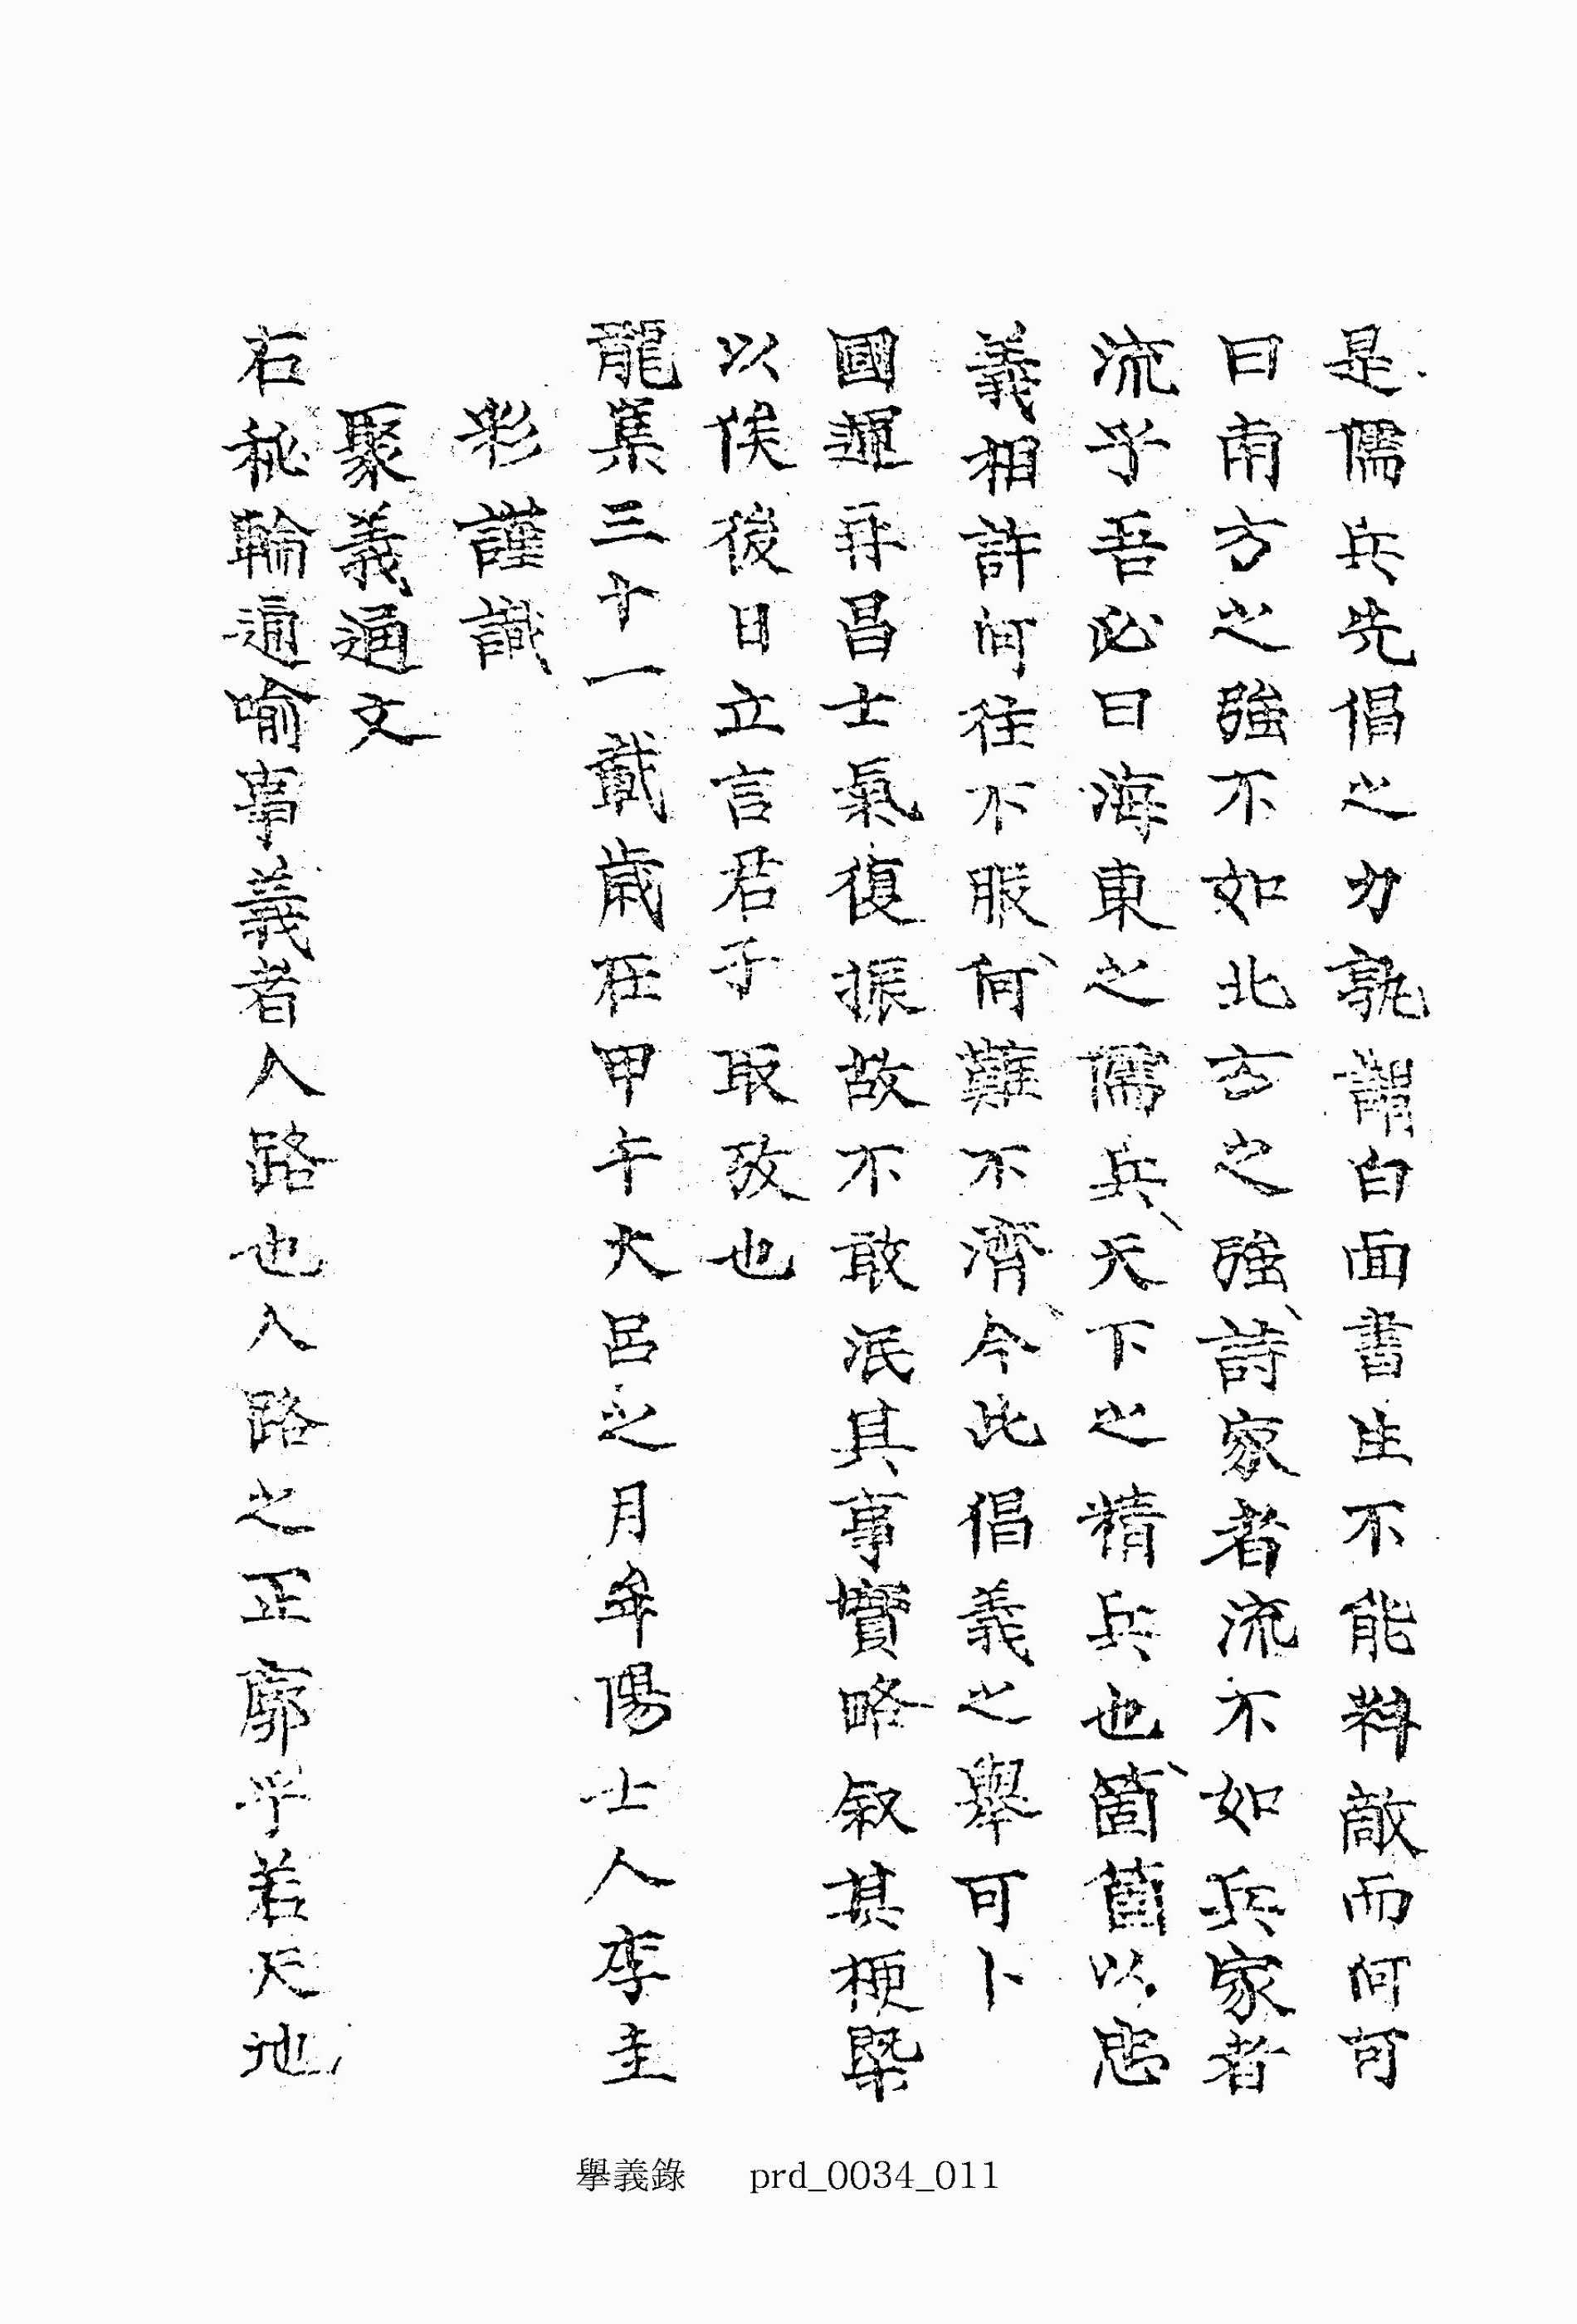 是儒兵先倡之力孰謂白面書生不能料敵而何可
曰南方之強不如北方之強詩家者流不如兵家者
流乎吾必曰海東之儒兵天下之精兵也箇箇以忠
義相許何往不服何難不濟今此倡義之舉可卜
國運再昌士氣復振故不敢泯其事實略叙其梗槩
以俟後日立言君子取攷也
龍集三十一載歲在甲午大呂之月牟陽士人李圭
彩謹識
聚義通文
右秘輪通喻事義者人路也人路之正廓乎若天地
擧義錄 prd_0034_011